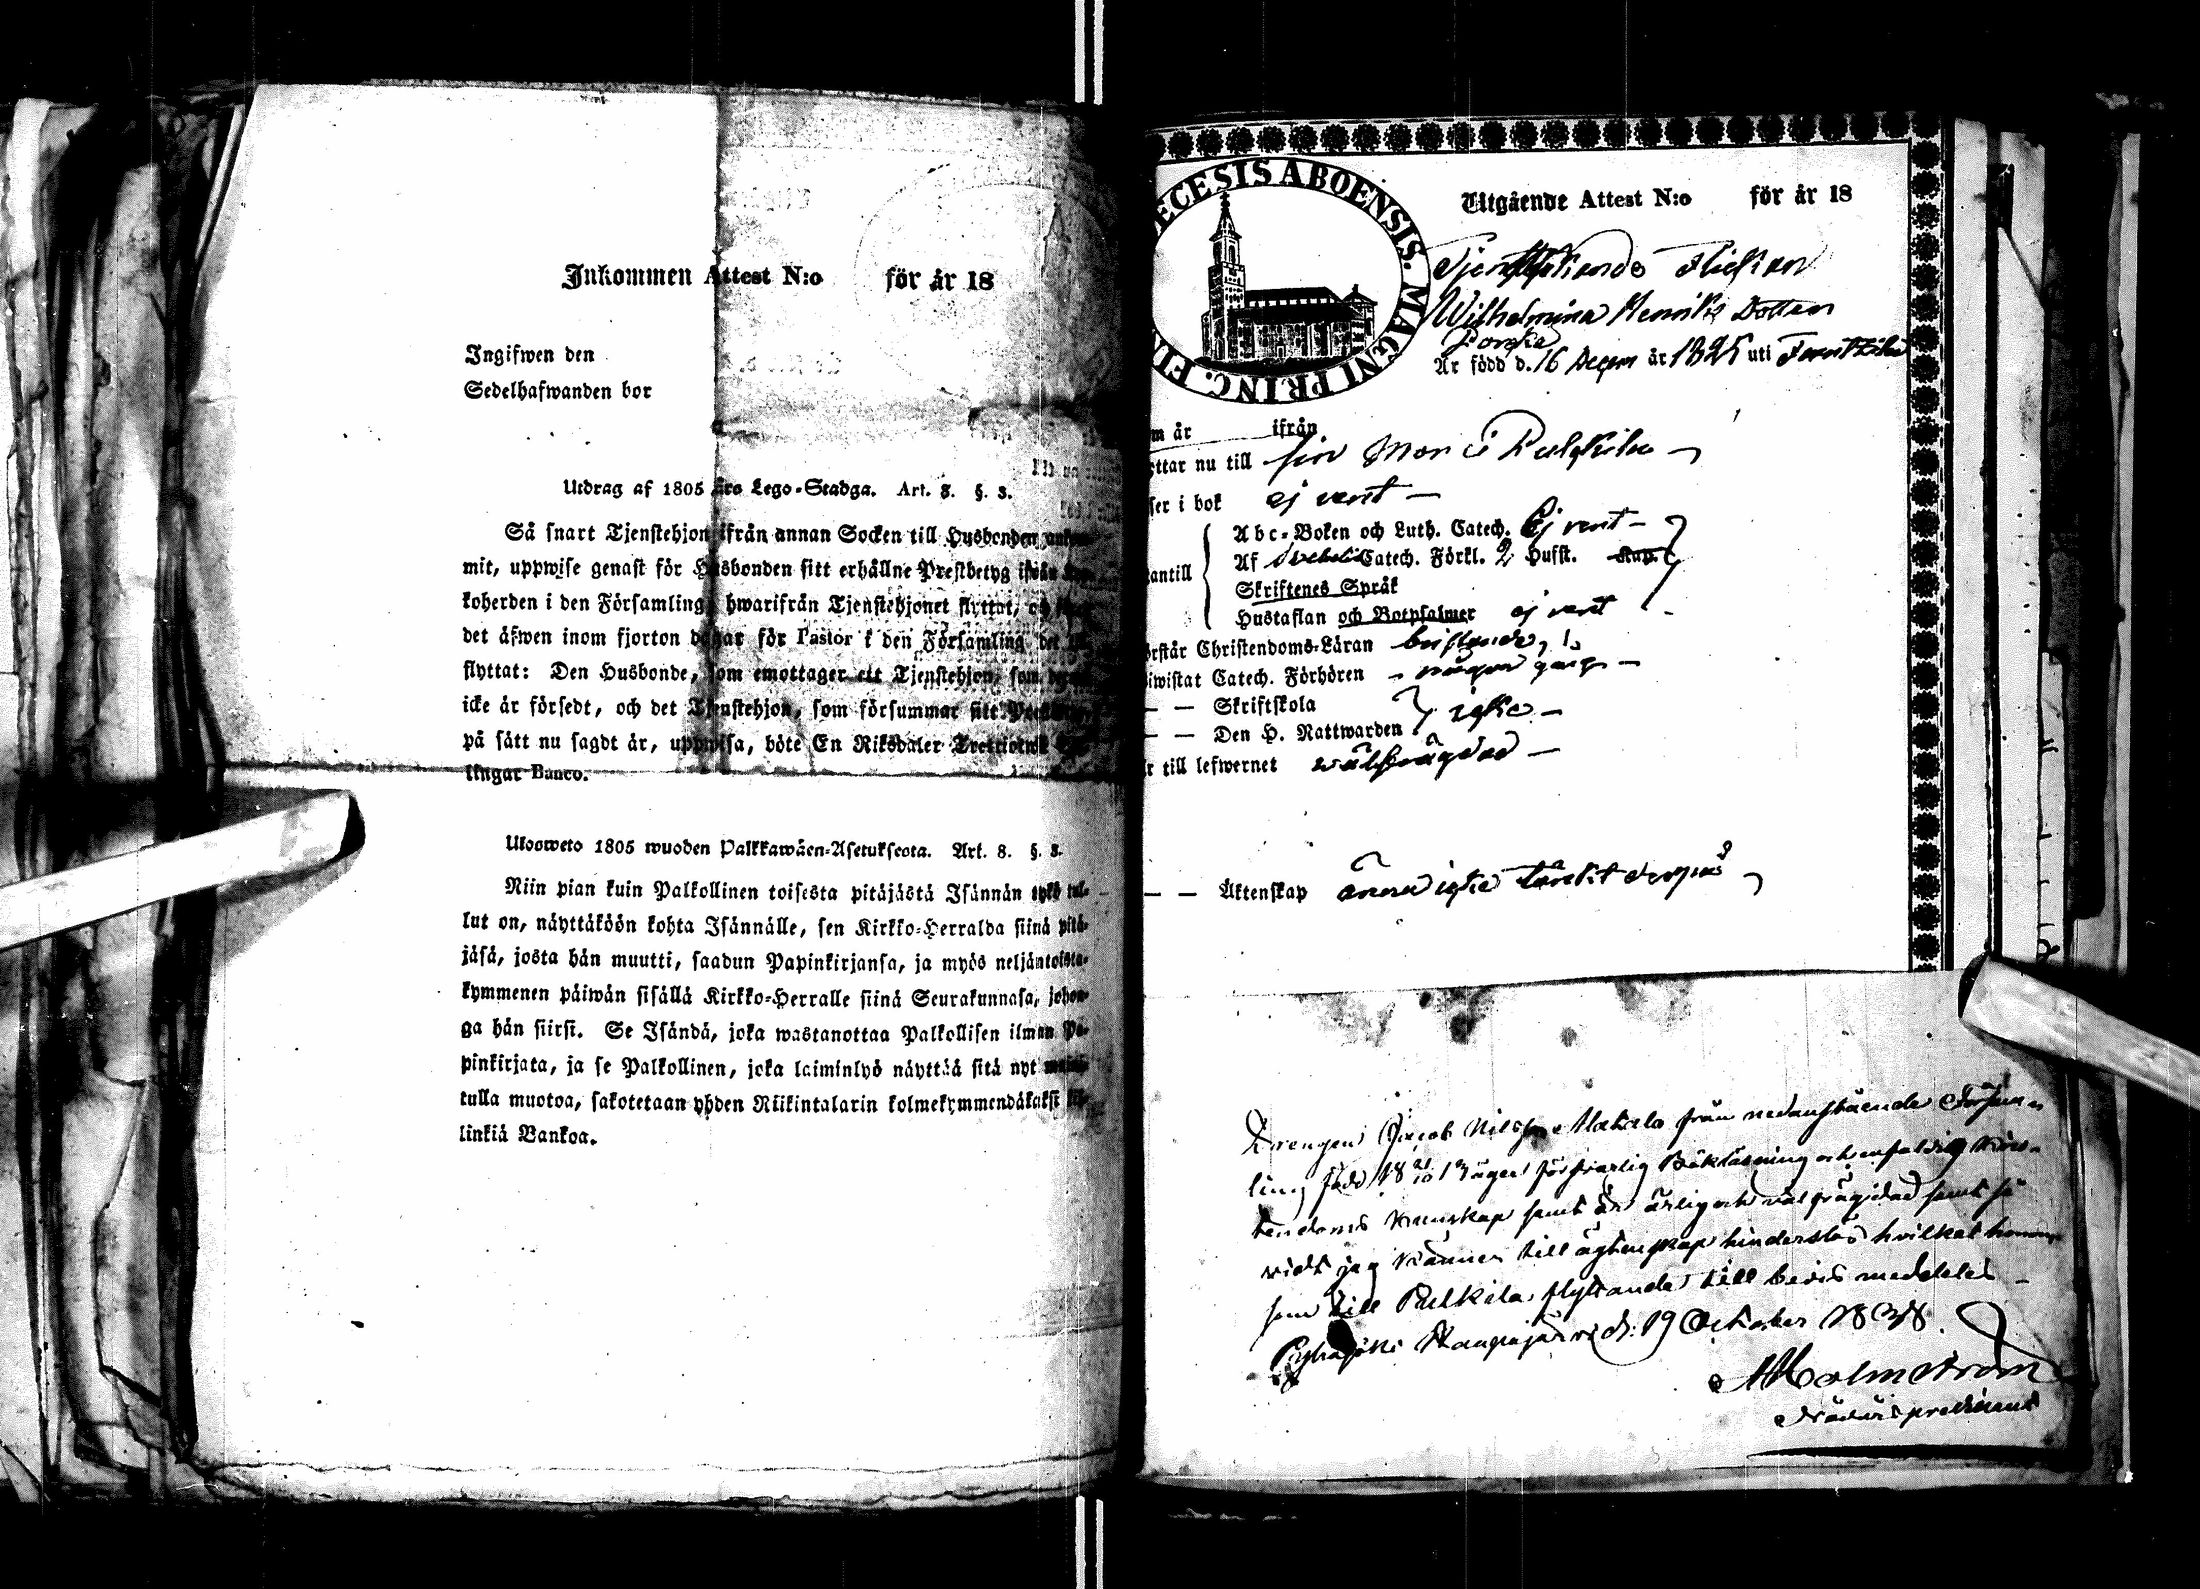 Inkommen Attest N:o för år 18
Ingifwen den
Sedelhafwanden bor
Utdrag af 1805 års Lego-Stadga. Art. 8. §. 3.
Så snart Tjenstehjon ifrån annan Socken till Husbonden
mit, uppwise genast för Husbonden sitt erhållne Prestbetyg ifrån
koherden i den Församling, hwarifrån Tjenstehjonet flyttat, och
det äfwen inom fjorton dagar för Pastor i den Församling det
flyttat: Den Husbonde, som emottager ett Tjenstehjon, som
icke är försedt, och det Tjenstehjon, som försummar sitt
på sätt nu sagdt är, uppwisa, böte En Riksdaler Trettiotwå
lingar Banco.
Ulosweto 1805 wuoden Palkkawäen-Asetuksesta. Art. 8. §. 3.
Niin pian kuin Palkollinen toisesta pitäjästä Isännän tykö tul-
lut on, näyttäköön kohta Isännälle, sen Kirkko-Herralda siinä pitä-
jäsä, josta hän muutti, saadun Papinkirjansa, ja myös neljäntoista-
kymmenen päiwän sisällä Kirkko-Herralle siinä Seurakunnasa, johon-
ga hän siirsi. Se Isändä, joka wastanottaa Palkollisen ilman Pa-
pinkirjata, ja se Palkollinen, joka laiminlyö näyttää sitä nyt
tulla muotoa, sakotetaan yhden Riikintalarin kolmekymmendäkaksi kil-
linkiä Bankoa.
ECESIS ABOENSIS. MAGNI PRINC. FIN
Utgående Attest N:o för år 18
Flickan
Wilhelmina Henriks Dotter
Är född d. 16 Decem år 1825 uti
m år ifrån
ttar nu till sin Mor i Pulkkila
ser i bok ej rent
Abc-Boken och Luth. Catech. Ej rent
Af Svebelii Catech. Förkl. 2 Hufst.
antill
Skriftenes Språk
Hustaflan och Botpsalmer ej rent
rstår Christendoms-Läran bristande
iwistat Catech. Förhören någon gång
— — Skriftskola
— — Den H. Nattwarden icke
r till lefwernet wälfrägdad
— — Äktenskap ännu icke tänkt
Drengen Jacob Nilsson från nedanstående Försam-
ling född 18 21/10 13 äger försvarlig Bokläsning och enfaldig Kris-
tendoms kunskap samt är ärlig och välfrägdad samt så
vidt jag känner till ägtenskap hinderslös hvilket honom
som till Pulkila flyttande till bevis meddeles
d: 19 October 1838.
Malmström